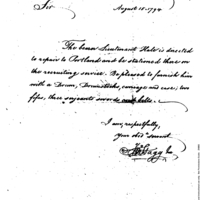 Sir August 15. 1794
The bearer Lieutenant Hale is directed
to repair to Portland and be stationed there on
the recruiting service. Be pleased to furnish him
with a Drum, Drumsticks, carriage and case; two
fifes, three sergeants swords and belts.
I am, respectfully,
your obdt servant